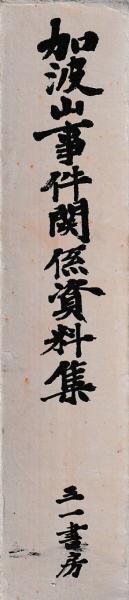 加波山事件関係資料集
三一書房